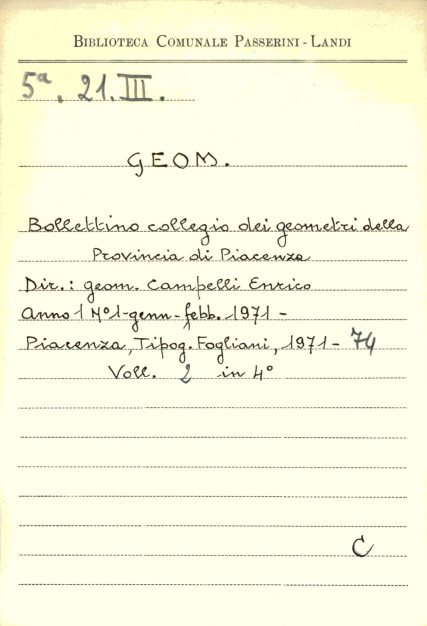 BIBLIOTECA COMUNALE PASSERINI - LANDI
5ª. 21. III.
GEOM.
Bollettino collegio dei geometri della
Provincia di Piacenza
Dir.: geom. Campelli Enrico
Anno 1 Nº1-genn-febb. 1971 -
Piacenza, Tipog. Fogliani, 1971 - 74
Voll. 2 in 4º
C